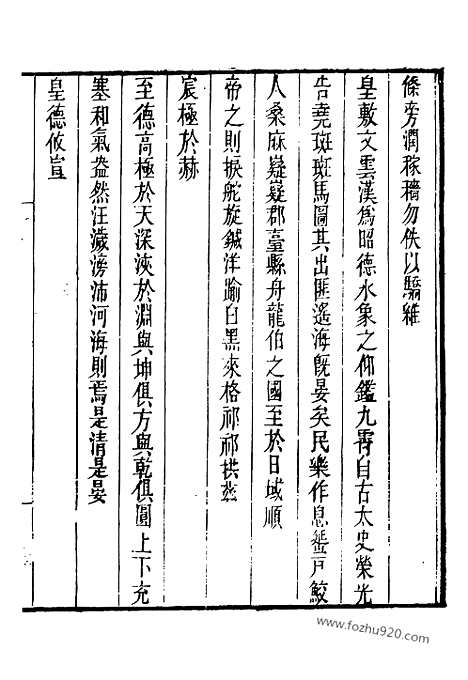 條旁潤稼穡勿佚以驕雜
皇敷文雲漢爲昭德水象之仰鑑九霄自古太史榮光
告堯斑斑馬圖其出匪遙海旣晏矣民樂作息蜑戶鮫
人桑麻嶷嶷郡臺縣舟龍伯之國至於日域順
帝之則捩舵旋鍼洋踰白黑來格祁祁拱茲
宸極於赫
至德高極於天深浹於淵與坤俱方與乾俱圓上下充
塞和氣盎然汪濊滂沛河海則焉是清是晏
皇德攸宣
www.fozhu920.com